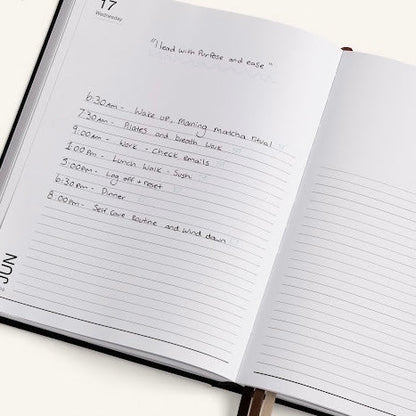 17
Wednesday
"I lead with Purpose and ease"
6:30AM - Wake up, Morning matcha ritual
7:30AM - Pilates and breath work
9:00AM - Work - Check Emails
1:00PM - Lunch Walk - Sushi
5:00PM - Log off + reset
6:30PM - Dinner
8:00PM - Self care Routine and wind down
JUN